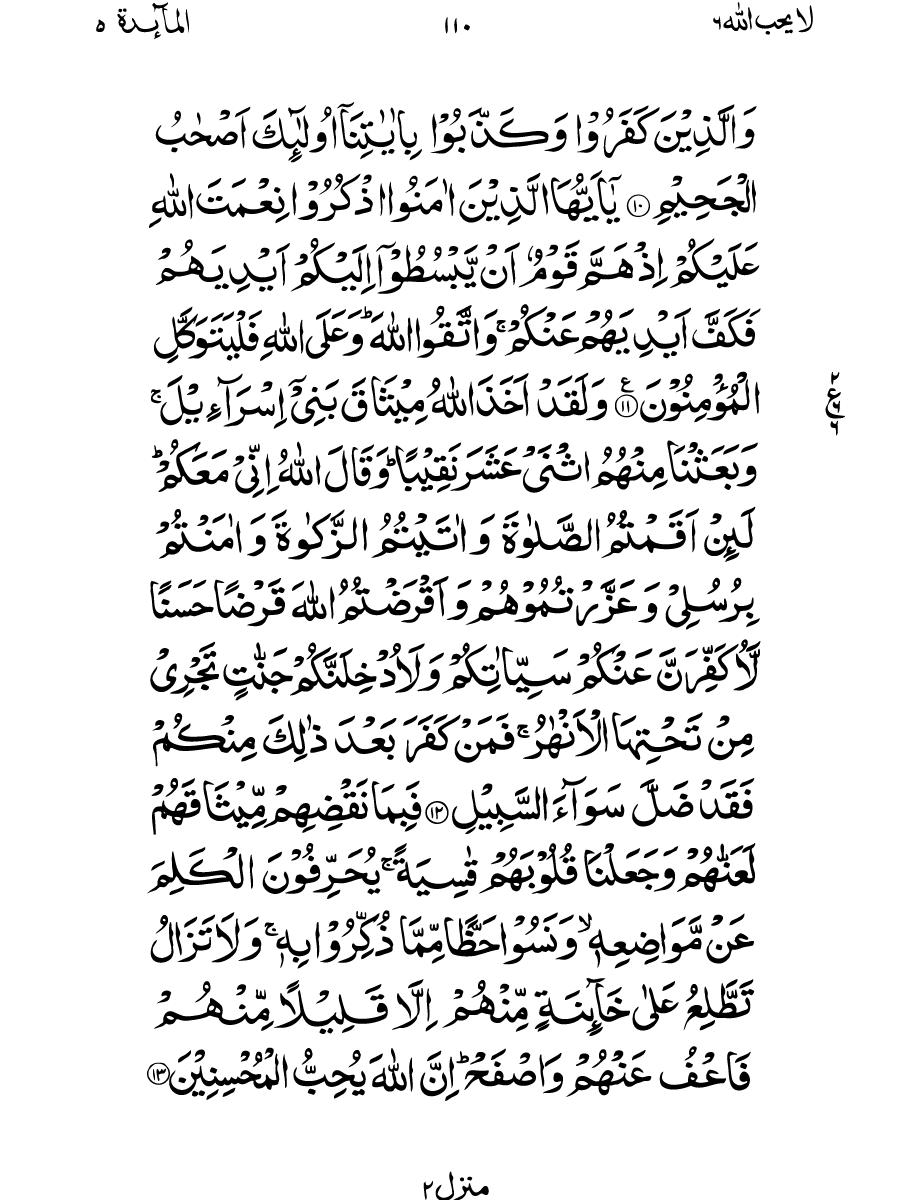 لا یحب الله ۶ ۱۱۰ المآئدة ۵
وَالَّذِيْنَ كَفَرُوْا وَكَذَّبُوْا بِاٰيٰتِنَآ اُولٰٓئِكَ اَصْحٰبُ
الْجَحِيْمِ ۝۱۰ يٰٓاَيُّهَا الَّذِيْنَ اٰمَنُوا اذْكُرُوْا نِعْمَتَ اللّٰهِ
عَلَيْكُمْ اِذْ هَمَّ قَوْمٌ اَنْ يَّبْسُطُوْٓا اِلَيْكُمْ اَيْدِيَهُمْ
فَكَفَّ اَيْدِيَهُمْ عَنْكُمْ ۚ وَاتَّقُوا اللّٰهَ ؕ وَعَلَى اللّٰهِ فَلْيَتَوَكَّلِ
الْمُؤْمِنُوْنَ ۝۱۱ ع وَلَقَدْ اَخَذَ اللّٰهُ مِيْثَاقَ بَنِيْٓ اِسْرَآءِيْلَ ۚ
۲ ع ۶ ۶
وَبَعَثْنَا مِنْهُمُ اثْنَيْ عَشَرَ نَقِيْبًا ؕ وَقَالَ اللّٰهُ اِنِّيْ مَعَكُمْ ؕ
لَئِنْ اَقَمْتُمُ الصَّلٰوةَ وَاٰتَيْتُمُ الزَّكٰوةَ وَاٰمَنْتُمْ
بِرُسُلِيْ وَعَزَّرْتُمُوْهُمْ وَاَقْرَضْتُمُ اللّٰهَ قَرْضًا حَسَنًا
لَّاُكَفِّرَنَّ عَنْكُمْ سَيِّاٰتِكُمْ وَلَاُدْخِلَنَّكُمْ جَنّٰتٍ تَجْرِيْ
مِنْ تَحْتِهَا الْاَنْهٰرُ ۚ فَمَنْ كَفَرَ بَعْدَ ذٰلِكَ مِنْكُمْ
فَقَدْ ضَلَّ سَوَآءَ السَّبِيْلِ ۝۱۲ فَبِمَا نَقْضِهِمْ مِّيْثَاقَهُمْ
لَعَنّٰهُمْ وَجَعَلْنَا قُلُوْبَهُمْ قٰسِيَةً ۚ يُحَرِّفُوْنَ الْكَلِمَ
عَنْ مَّوَاضِعِهٖ ۙ وَنَسُوْا حَظًّا مِّمَّا ذُكِّرُوْا بِهٖ ۚ وَلَا تَزَالُ
تَطَّلِعُ عَلٰى خَآئِنَةٍ مِّنْهُمْ اِلَّا قَلِيْلًا مِّنْهُمْ
فَاعْفُ عَنْهُمْ وَاصْفَحْ ؕ اِنَّ اللّٰهَ يُحِبُّ الْمُحْسِنِيْنَ ۝۱۳
منزل ۲